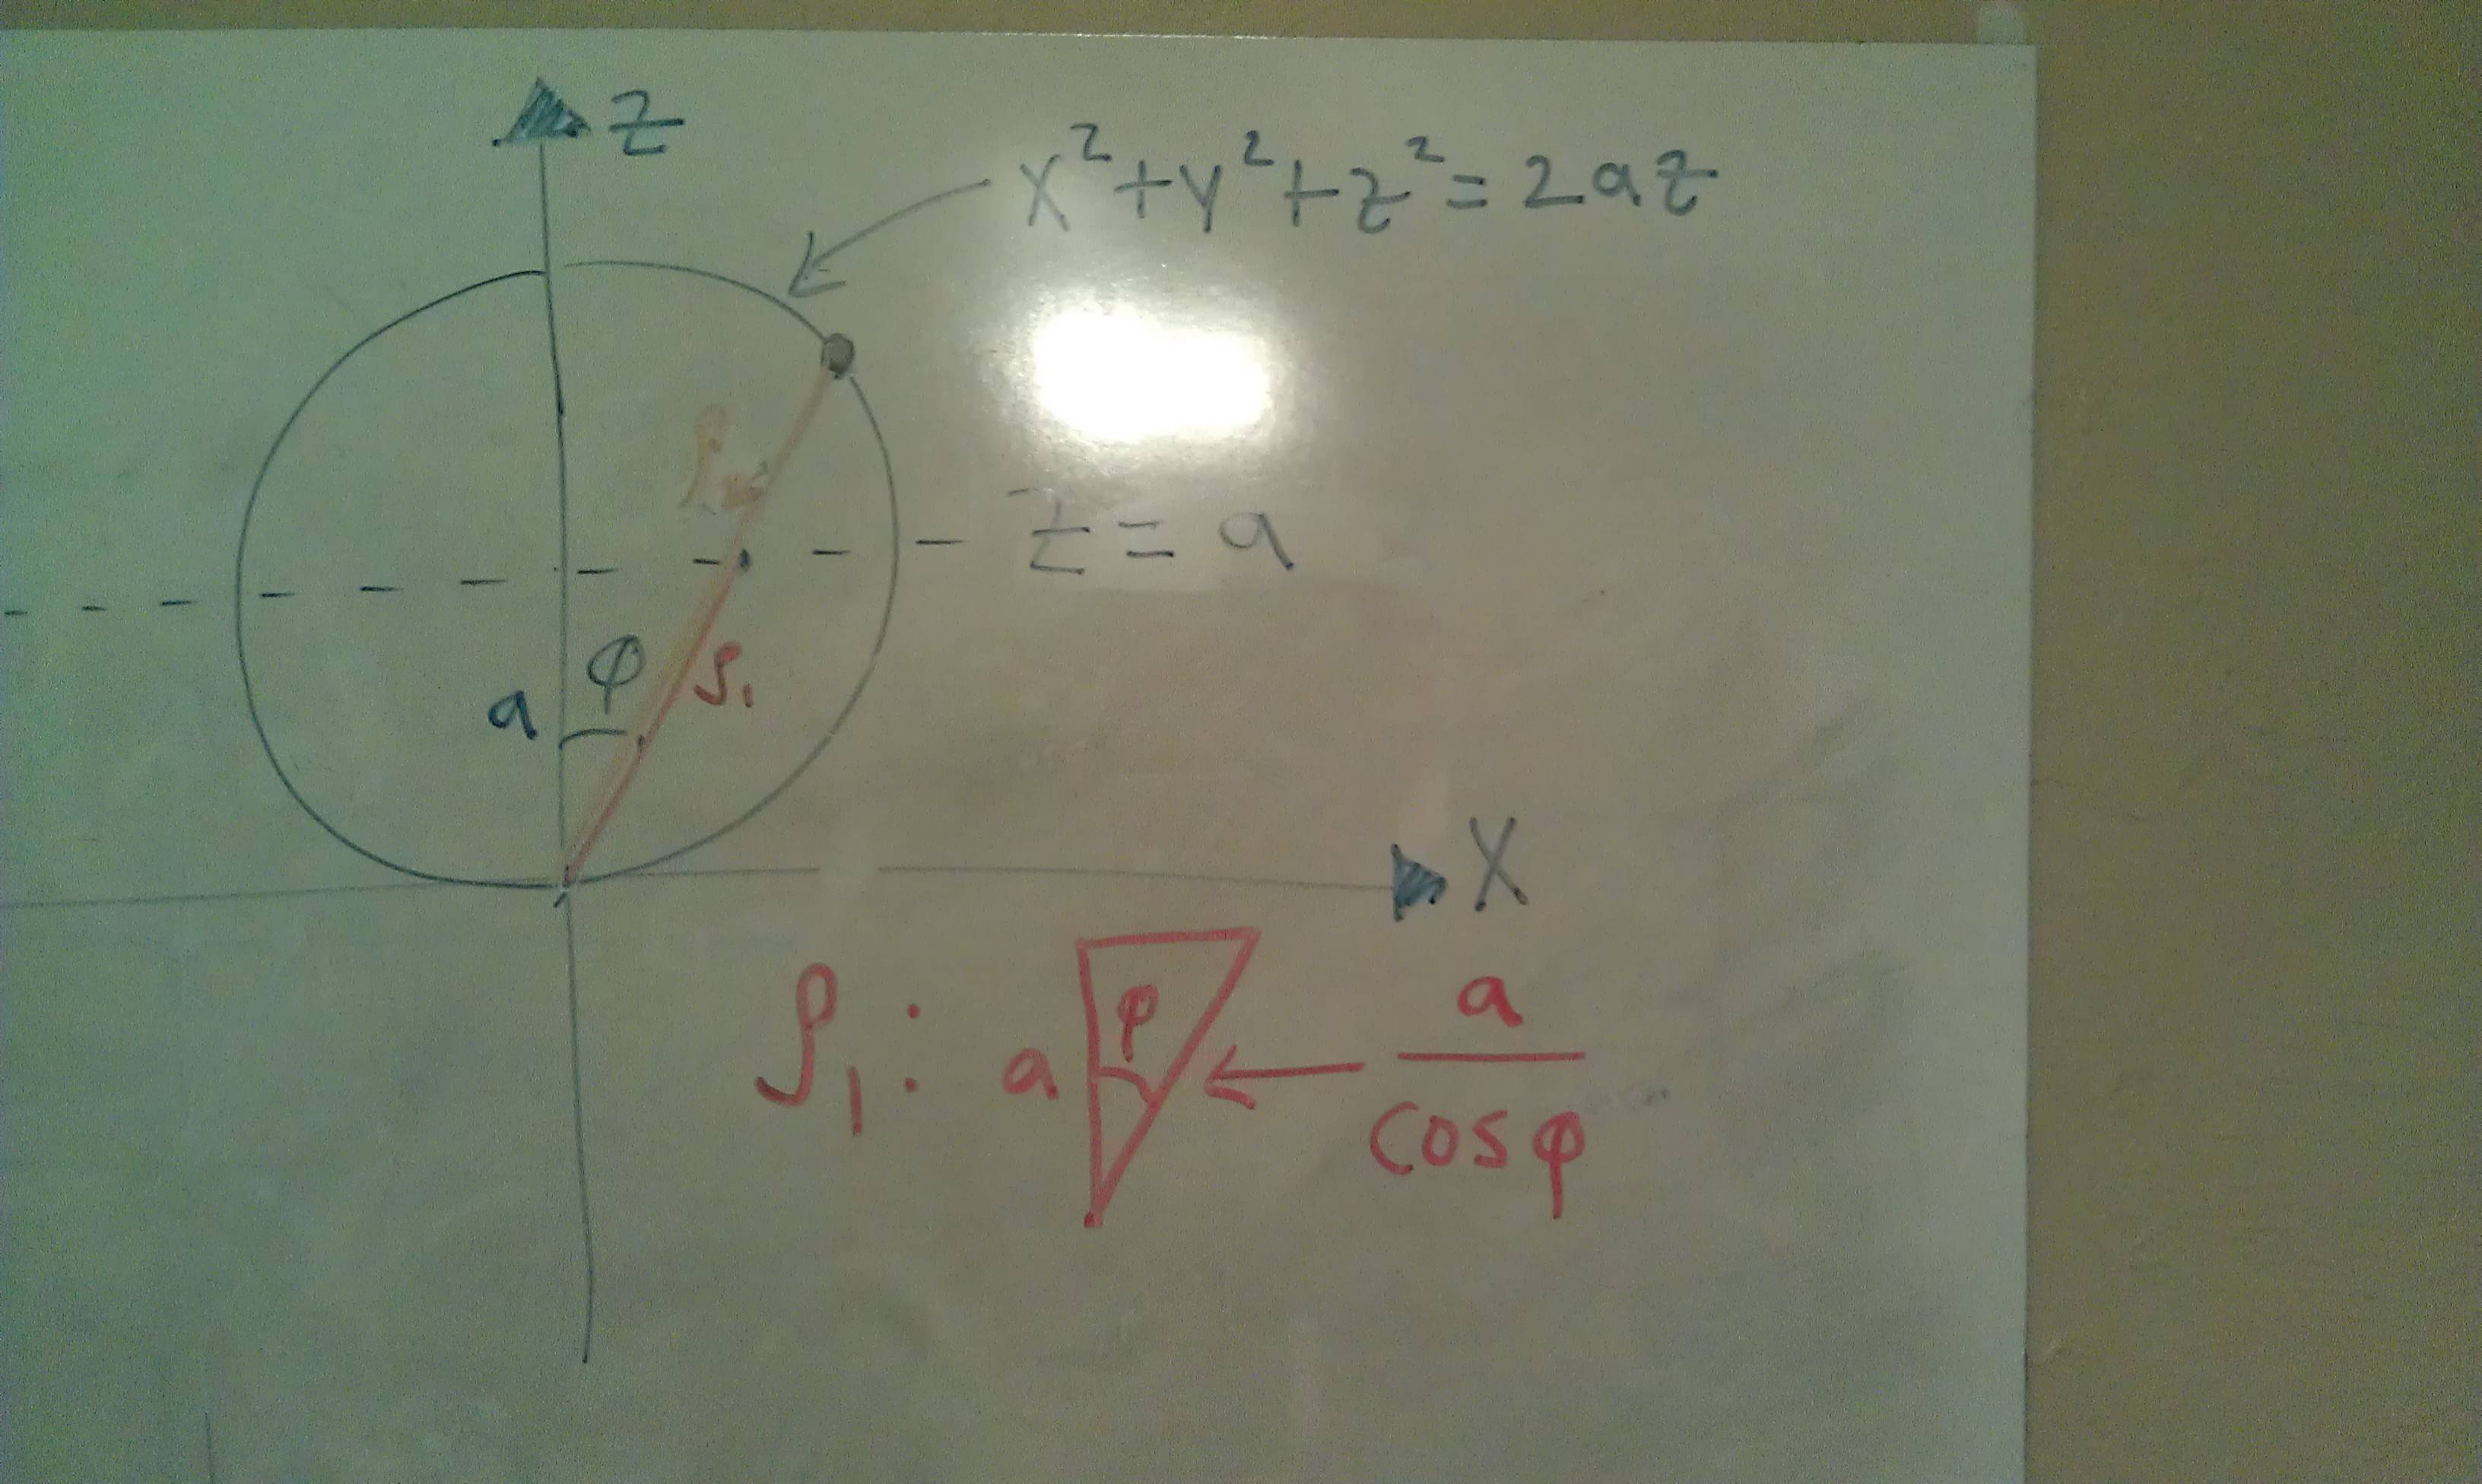 z
x²+y²+z²=2az
z = a
φ
a
ρ₁
X
ρ₁: a φ ← a/cosφ